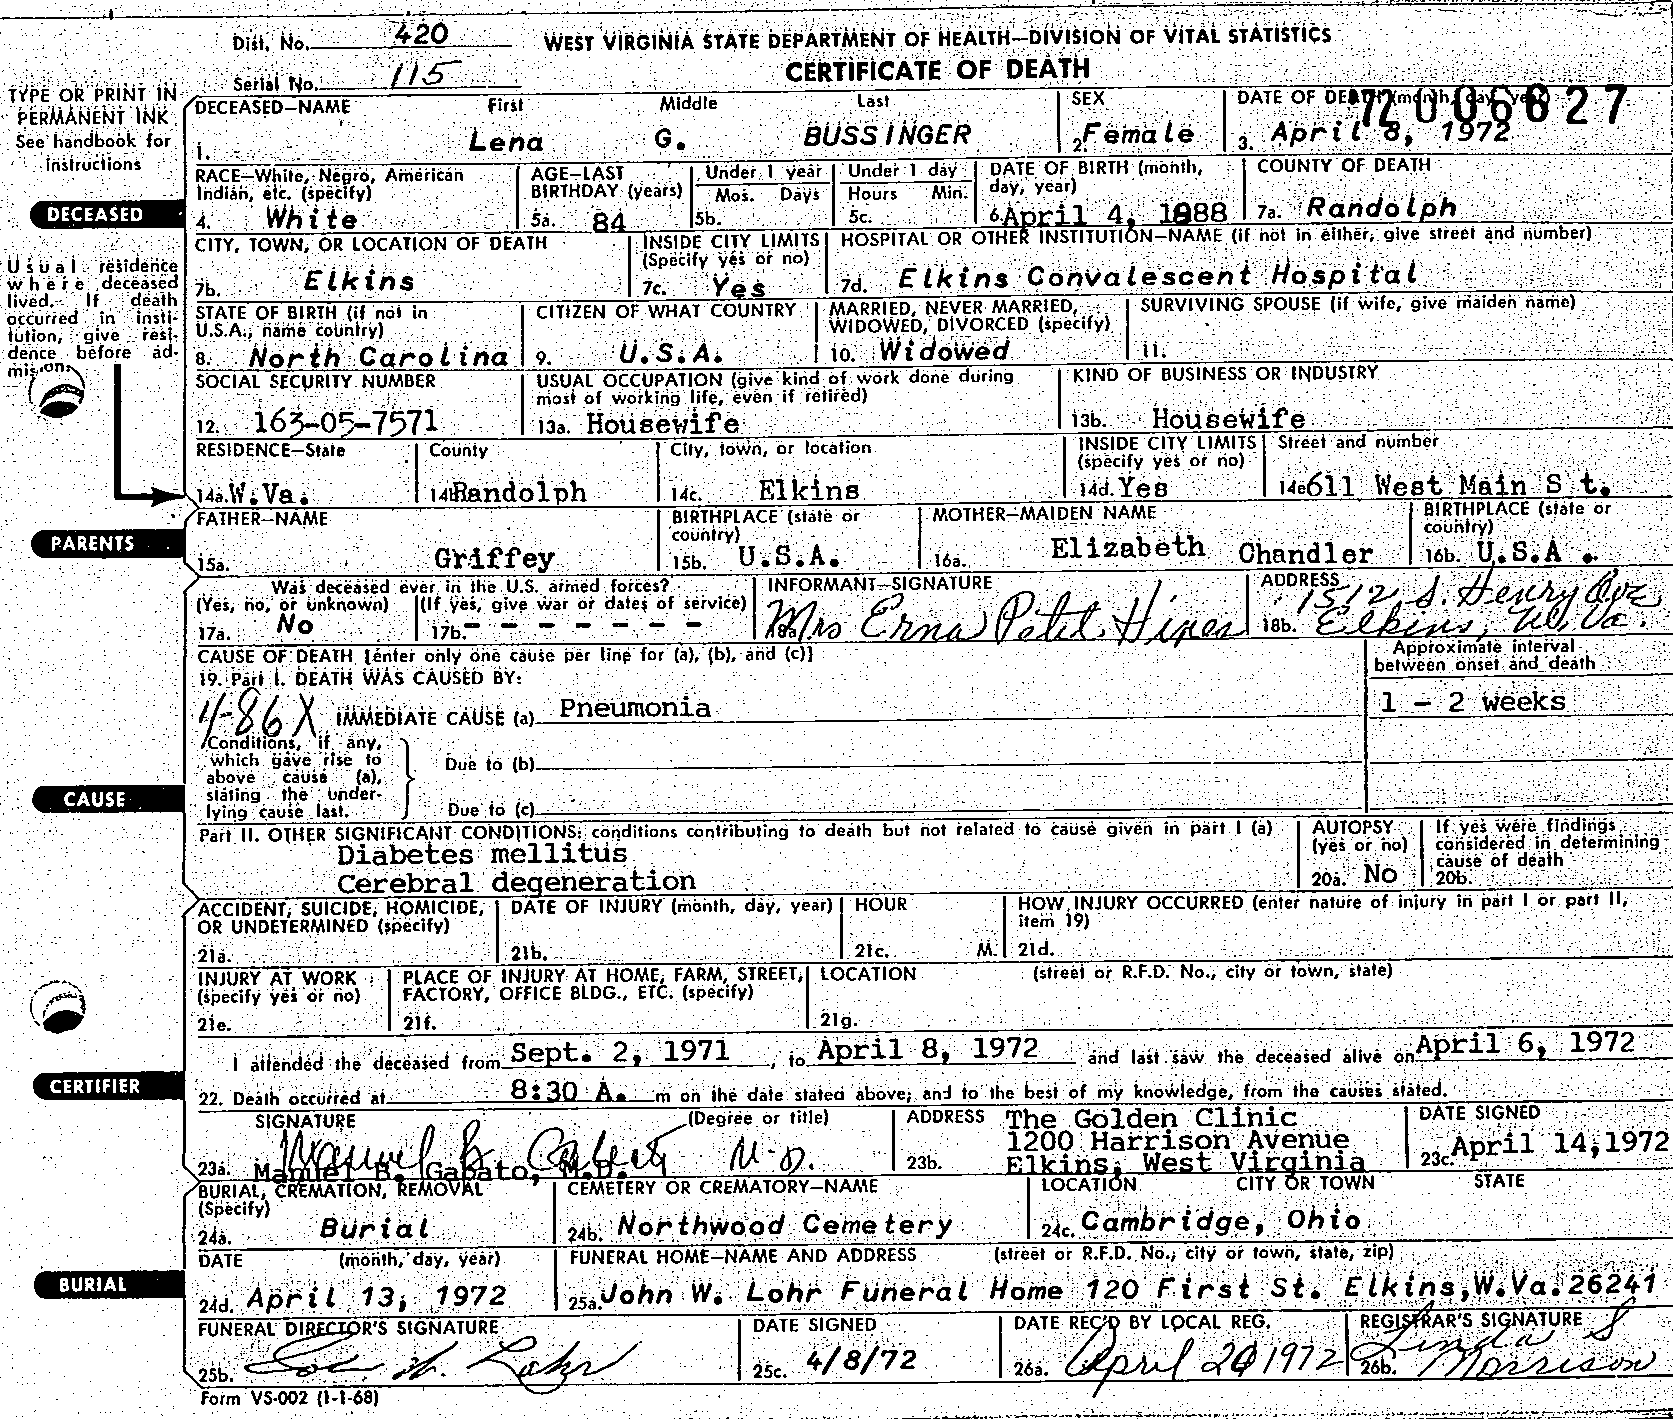 Dist. No. 420 WEST VIRGINIA STATE DEPARTMENT OF HEALTH—DIVISION OF VITAL STATISTICS
Serial No. 115 CERTIFICATE OF DEATH
72 006627
TYPE OR PRINT IN
PERMANENT INK
See handbook for
instructions
DECEASED—NAME First Middle Last SEX DATE OF DEATH (month, day, year)
1. Lena G. BUSSINGER 2. Female 3. April 8, 1972
RACE—White, Negro, American Indian, etc. (specify) AGE—LAST BIRTHDAY (years) Under 1 year Under 1 day DATE OF BIRTH (month, day, year) COUNTY OF DEATH
Mos. Days Hours Min.
DECEASED
4. White 5a. 84 5b. 5c. 6. April 4, 1888 7a. Randolph
CITY, TOWN, OR LOCATION OF DEATH INSIDE CITY LIMITS (Specify yes or no) HOSPITAL OR OTHER INSTITUTION—NAME (if not in either, give street and number)
7b. Elkins 7c. Yes 7d. Elkins Convalescent Hospital
Usual residence
where deceased
lived. If death
occurred in insti-
tution, give resi-
dence before ad-
mission.
STATE OF BIRTH (if not in U.S.A., name country) CITIZEN OF WHAT COUNTRY MARRIED, NEVER MARRIED, WIDOWED, DIVORCED (specify) SURVIVING SPOUSE (if wife, give maiden name)
8. North Carolina 9. U.S.A. 10. Widowed 11.
SOCIAL SECURITY NUMBER USUAL OCCUPATION (give kind of work done during most of working life, even if retired) KIND OF BUSINESS OR INDUSTRY
12. 163-05-7571 13a. Housewife 13b. Housewife
RESIDENCE—State County City, town, or location INSIDE CITY LIMITS (specify yes or no) Street and number
14a. W.Va. 14b. Randolph 14c. Elkins 14d. Yes 14e 611 West Main S t.
PARENTS
FATHER—NAME BIRTHPLACE (state or country) MOTHER—MAIDEN NAME BIRTHPLACE (state or country)
15a. Griffey 15b. U.S.A. 16a. Elizabeth Chandler 16b. U.S.A .
Was deceased ever in the U.S. armed forces? INFORMANT—SIGNATURE ADDRESS
(Yes, no, or unknown) (If yes, give war or dates of service) 1512 S. Henry Ave
17a. No 17b. - - - - - - - 18a Mrs Erna Hines 18b. Elkins, W. Va.
CAUSE OF DEATH [enter only one cause per line for (a), (b), and (c)] Approximate interval between onset and death
19. Part I. DEATH WAS CAUSED BY:
486X IMMEDIATE CAUSE (a) Pneumonia 1 - 2 weeks
Conditions, if any,
which gave rise to
above cause (a),
stating the under-
lying cause last.
Due to (b)
Due to (c)
CAUSE
Part II. OTHER SIGNIFICANT CONDITIONS: conditions contributing to death but not related to cause given in part I (a) AUTOPSY (yes or no) If yes were findings considered in determining cause of death
Diabetes mellitus
Cerebral degeneration 20a. No 20b.
ACCIDENT, SUICIDE, HOMICIDE, OR UNDETERMINED (specify) DATE OF INJURY (month, day, year) HOUR HOW INJURY OCCURRED (enter nature of injury in part I or part II, item 19)
21a. 21b. 21c. M. 21d.
INJURY AT WORK (specify yes or no) PLACE OF INJURY AT HOME, FARM, STREET, FACTORY, OFFICE BLDG., ETC. (specify) LOCATION (street or R.F.D. No., city or town, state)
21e. 21f. 21g.
I attended the deceased from Sept. 2, 1971, to April 8, 1972 and last saw the deceased alive on April 6, 1972
CERTIFIER
22. Death occurred at 8:30 A. m on the date stated above; and to the best of my knowledge, from the causes stated.
SIGNATURE (Degree or title) ADDRESS The Golden Clinic DATE SIGNED
1200 Harrison Avenue
M.D.
23a. Manuel B. Gabato, M.D. 23b. Elkins, West Virginia 23c. April 14, 1972
BURIAL, CREMATION, REMOVAL (Specify) CEMETERY OR CREMATORY—NAME LOCATION CITY OR TOWN STATE
24a. Burial 24b. Northwood Cemetery 24c. Cambridge, Ohio
DATE (month, day, year) FUNERAL HOME—NAME AND ADDRESS (street or R.F.D. No., city or town, state, zip)
BURIAL
24d. April 13, 1972 25a. John W. Lohr Funeral Home 120 First St. Elkins, W.Va. 26241
FUNERAL DIRECTOR'S SIGNATURE DATE SIGNED DATE REC'D BY LOCAL REG. REGISTRAR'S SIGNATURE
25b. Lohr 25c. 4/8/72 26a. April 20 1972 26b. Linda S Morrison
Form VS-002 (1-1-68)